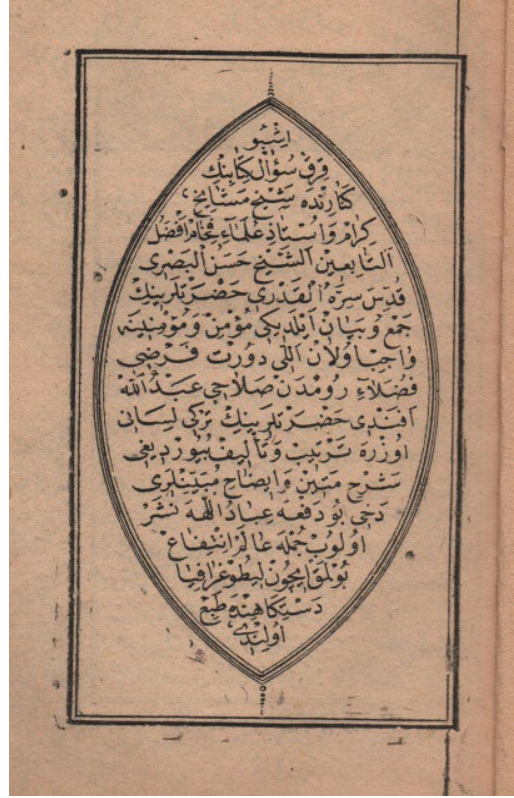 اشبو
قرق سؤال كتابنك
كنارنده شيخ مشايخ
كرام واستاد علماء فخام افضل
التابعين الشيخ حسن البصرى
قدس سره القدرى حضرتلرينك
جمع وبيان ايلديكى مؤمن ومؤمنينه
واجب اولان اللى دورت فرضى
فضلاء رومدن صلاحى عبد الله
افندى حضرتلرينك تركى لسانى
اوزره ترتيب وتأليف بيورديغى
شرح متين وايضاح مبينلرى
دخى بو دفعه عباد اللهه نشر
اولوب جمله عالم انتفاع
بولمق ايچون ليطوغرافيا
دستكاهنده طبع
اولندى